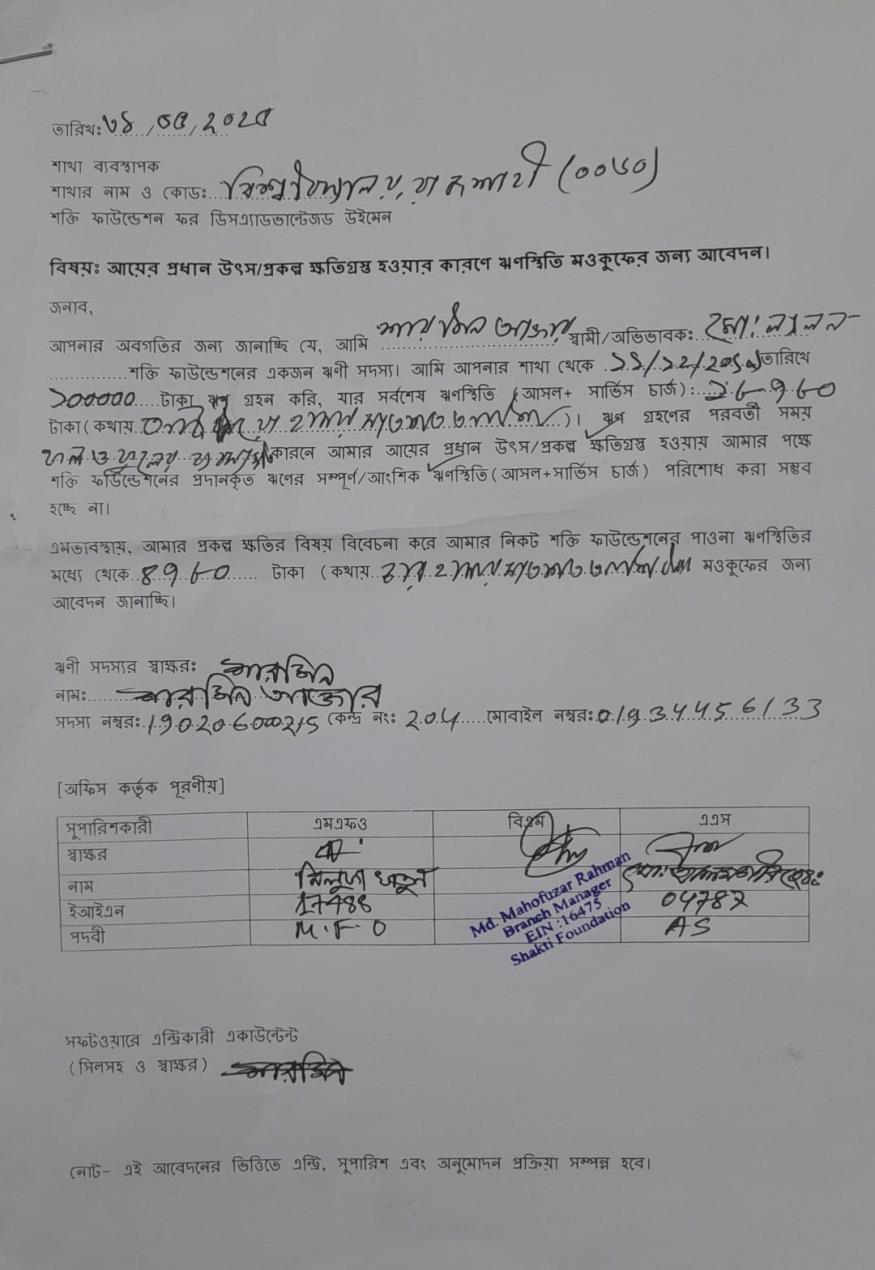 তারিখ: ০৪/০৫/২০২৫
শাখা ব্যবস্থাপক
শাখার নাম ও কোড: বিশ্ববিদ্যালয়, রাজশাহী (০০৬০)
শক্তি ফাউন্ডেশন ফর ডিসএ্যাডভান্টেজড উইমেন
বিষয়ঃ আয়ের প্রধান উৎস/প্রকল্প ক্ষতিগ্রস্থ হওয়ার কারণে ঋণস্থিতি মওকুফের জন্য আবেদন।
জনাব,
আপনার অবগতির জন্য জানাচ্ছি যে, আমি শারমিন আক্তার স্বামী/অভিভাবক: মো: লালন
শক্তি ফাউন্ডেশনের একজন ঋণী সদস্য। আমি আপনার শাখা থেকে তারিখে
১০০০০০ টাকা ঋণ গ্রহন করি, যার সর্বশেষ ঋণস্থিতি (আসল+ সার্ভিস চার্জ):
টাকা (কথায় হাজার সাতশত )। ঋণ গ্রহণের পরবর্তী সময়
কারনে আমার আয়ের প্রধান উৎস/প্রকল্প ক্ষতিগ্রস্থ হওয়ায় আমার পক্ষে
শক্তি ফাউন্ডেশনের প্রদানকৃত ঋণের সম্পূর্ণ/আংশিক ঋণস্থিতি (আসল+সার্ভিস চার্জ) পরিশোধ করা সম্ভব
হচ্ছে না।
এমতাবস্থায়, আমার প্রকল্প ক্ষতির বিষয় বিবেচনা করে আমার নিকট শক্তি ফাউন্ডেশনের পাওনা ঋণস্থিতির
মধ্যে থেকে ৪৭৮০ টাকা (কথায় চার হাজার সাতশত মওকুফের জন্য
আবেদন জানাচ্ছি।
ঋণী সদস্যর স্বাক্ষরঃ শারমিন
নাম: শারমিন আক্তার
সদস্য নম্বর: 190206000215 কেন্দ্র নং: 204 মোবাইল নম্বর: 01934456133
[অফিস কর্তৃক পূরনীয়]
সুপারিশকারী এমএফও বিএম এএস
স্বাক্ষর
নাম
ইআইএন 17488 04782
পদবী M.F.O AS
Md. Mahofuzar Rahman
Branch Manager
EIN:16475
Shakti Foundation
সফটওয়ারে এন্ট্রিকারী একাউন্টেন্ট
(সিলসহ ও স্বাক্ষর) শারমিন
নোট- এই আবেদনের ভিত্তিতে এন্ট্রি, সুপারিশ এবং অনুমোদন প্রক্রিয়া সম্পন্ন হবে।